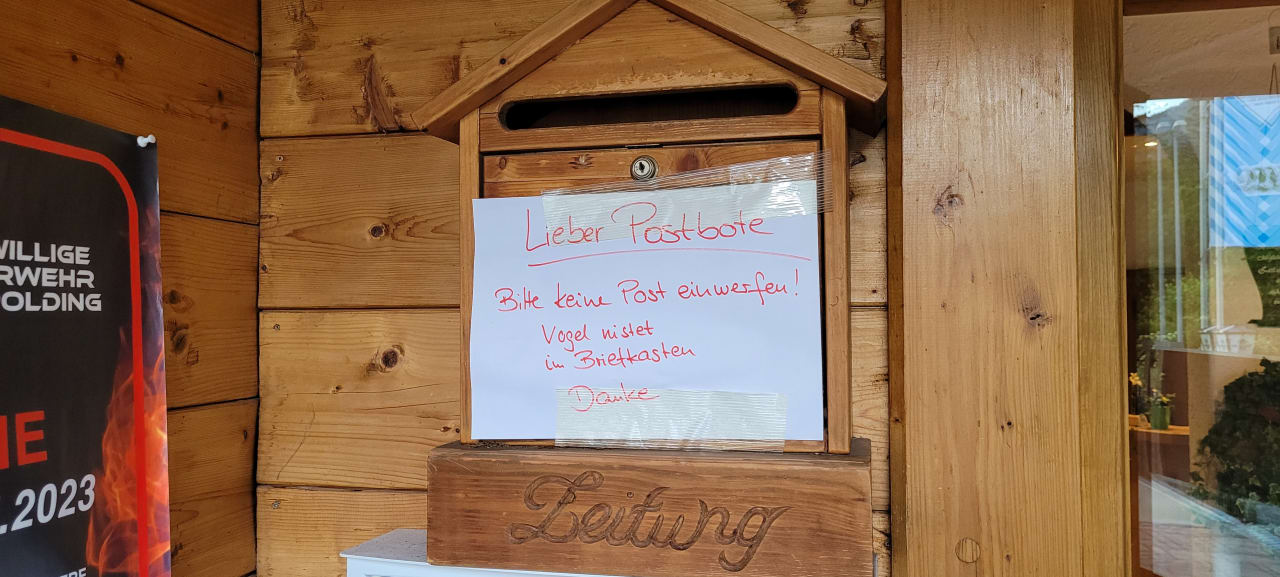 WILLIGE
RWEHR
OLDING
IE
.2023
Lieber Postbote
Bitte keine Post einwerfen!
Vogel nistet
im Briefkasten
Danke
Zeitung